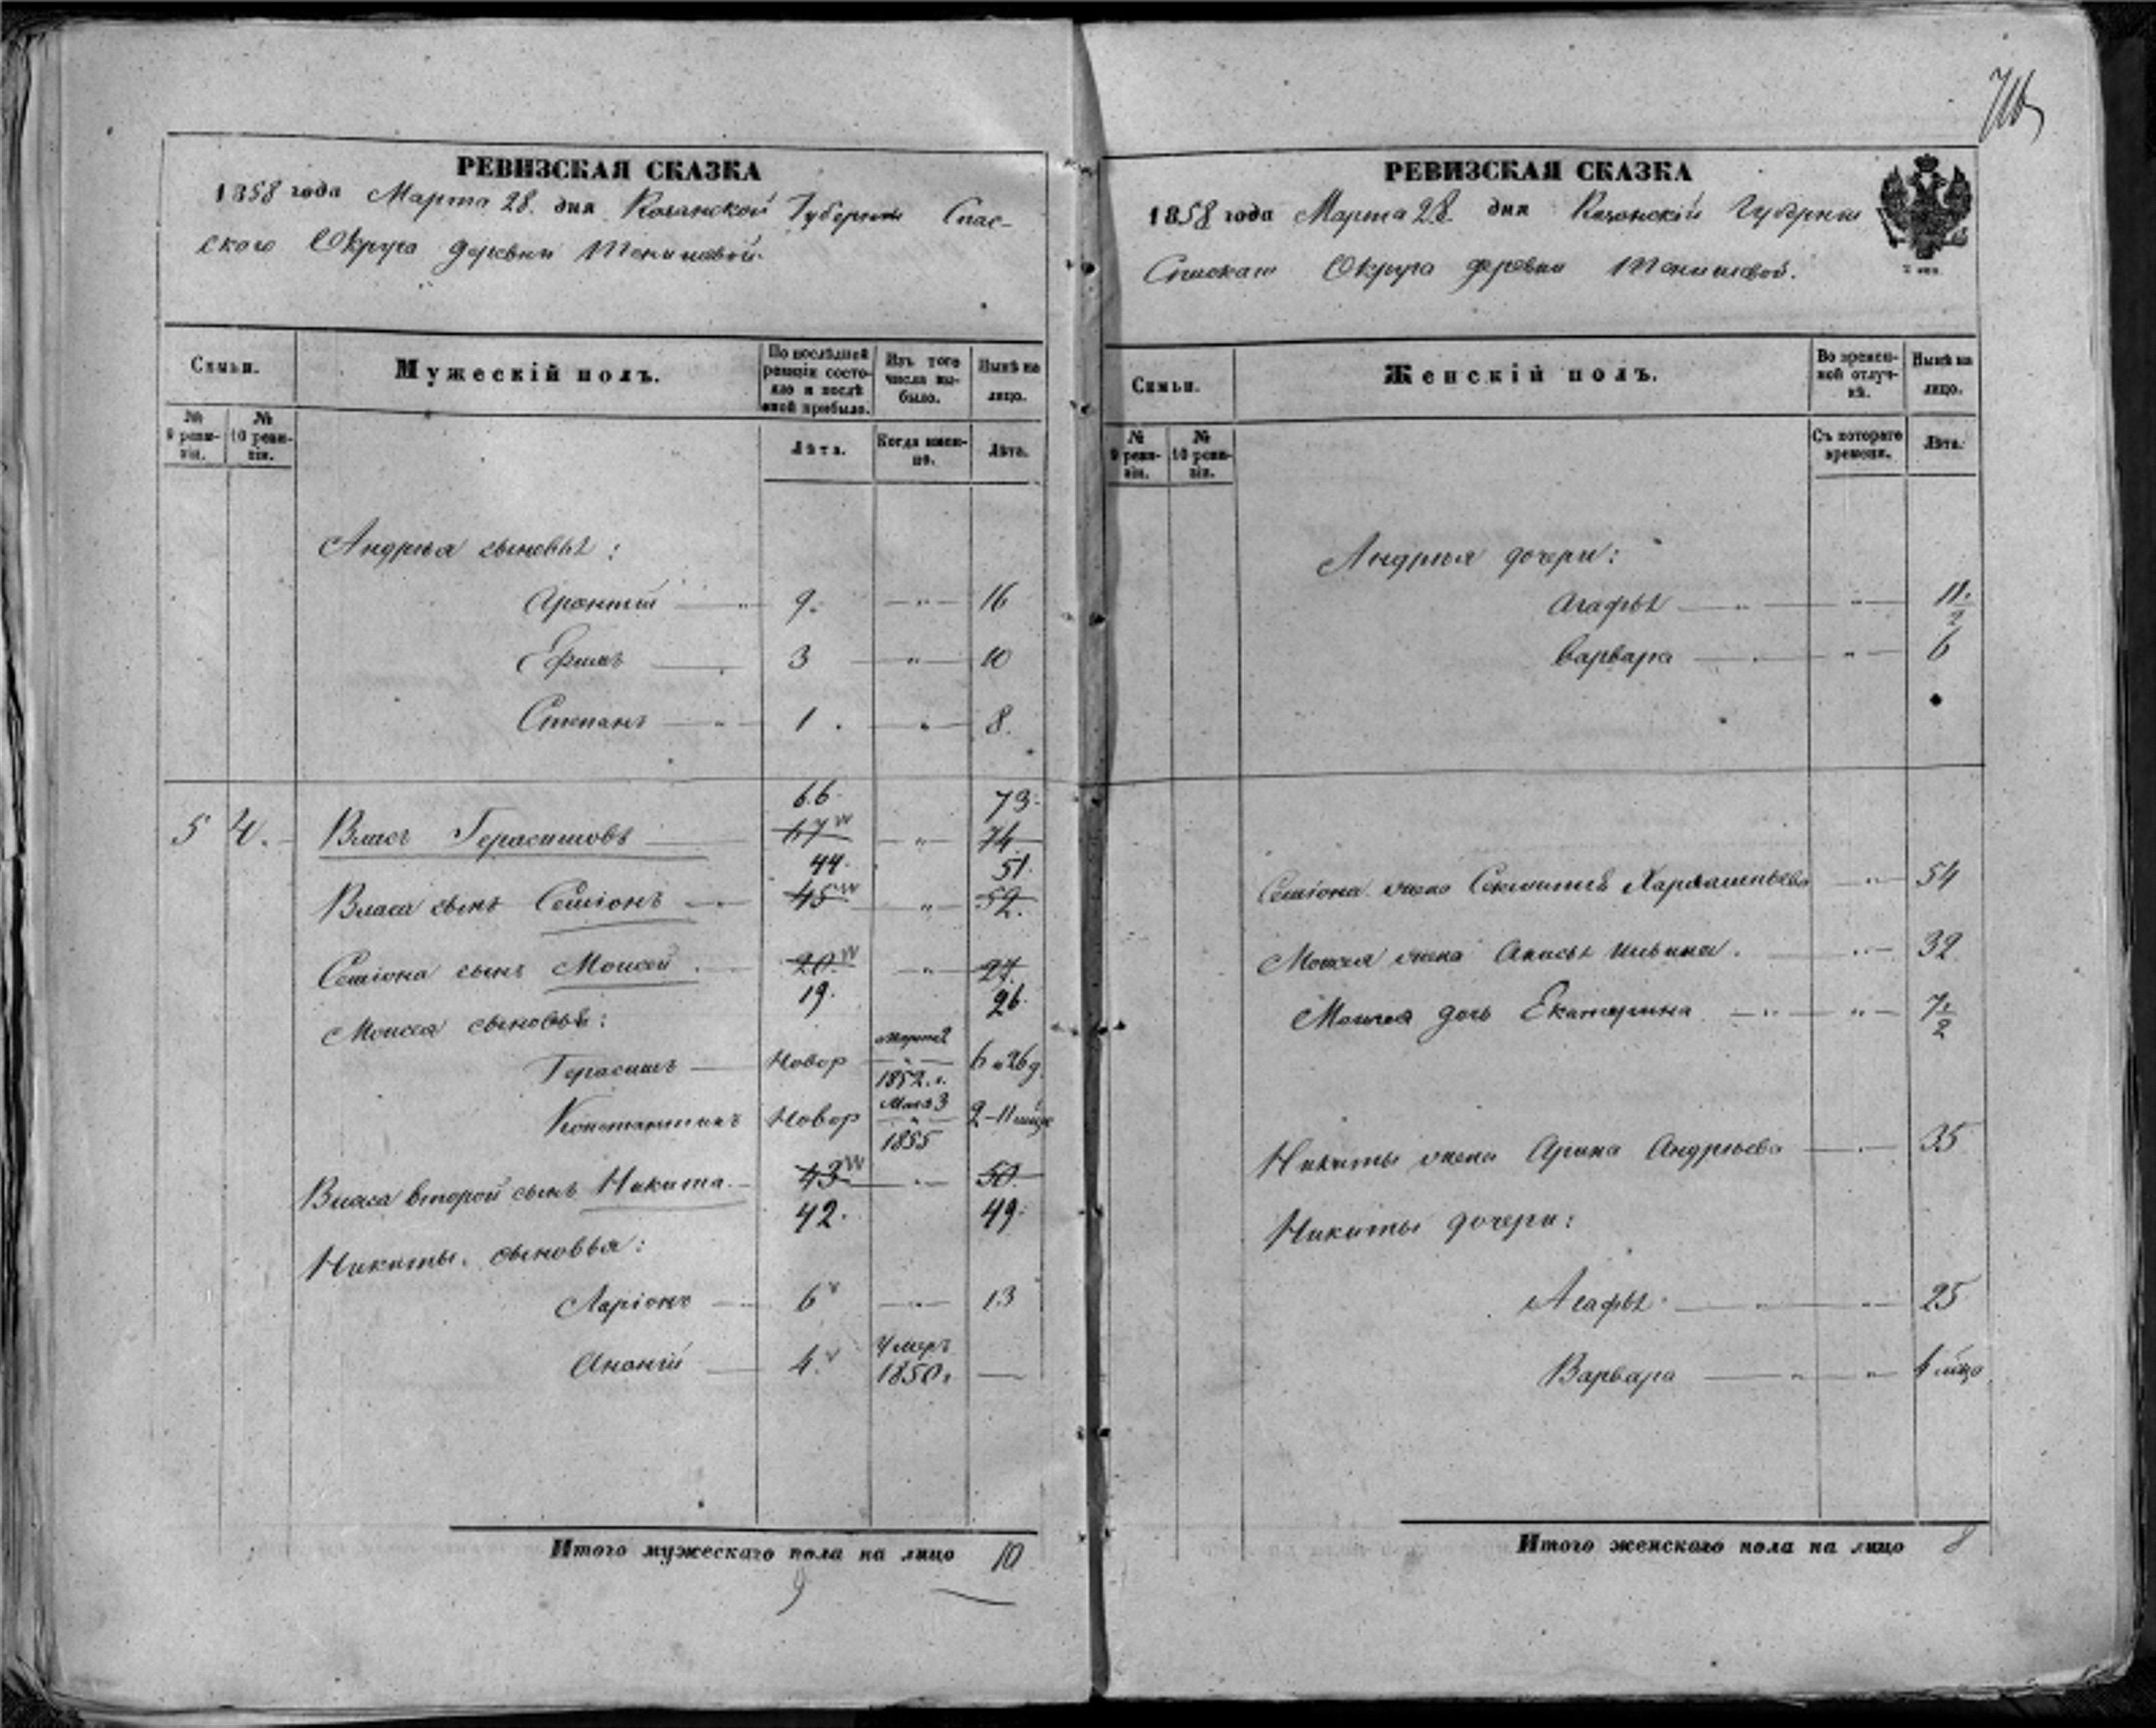 РЕВИЗСКАЯ СКАЗКА
1858 года Марта 28. дня Казанской Губернии Спас-
скаго Округа деревни
Семьи.
Мужескій полъ.
По послѣдней ревизіи состояло и послѣ оной прибыло.
Изъ того числа выбыло.
Нынѣ на лицо.
№ 9 ревизіи.
№ 10 ревизіи.
Лѣта.
Когда именно.
Лѣта.
Андрея сыновья:
9. — " — 16
Ефимъ — 3 — " — 10
Степанъ — " — 1. — " — 8.
66. 73.
5 4. Власъ Герасимовъ — 67 — " — 74
44. 51.
Власа сынъ Семіонъ — 45 — " — 52.
Семіона сынъ Моисей — 20 — " — 27.
19. 26.
Моисея сыновья:
Марта 2
Герасимъ — Новор — " — 6 и 26 д.
1852. г.
Маія 3
Константинъ Новор — " — 2 — 11 мѣс
1855
Власа второй сынъ Никита. — 43 — " — 50.
42. 49.
Никиты. сыновья:
Ларіонъ — 6 — " — 13
Умеръ
Ананій — 4. 1850 г —
Итого мужескаго пола на лицо 10
9
РЕВИЗСКАЯ СКАЗКА
1858 года Марта 28. дня Казанской Губерніи
Спаскаго Округа деревни
Семьи.
Женскій полъ.
Во временной отлучкѣ.
Нынѣ на лицо.
№ 9 ревизіи.
№ 10 ревизіи.
Съ котораго времени.
Лѣта.
Андрея дочери:
Агафья — " — " — 11. 1/2
Варвара — " — " — 6
Семіона жена — " — 54
Моисея жена Анисья Ильина. — " — 32
Моисея дочь Екатерина — " — " — 7 1/2
Никиты жена Арина Андреева — " — 35
Никиты дочери:
Агафья — " — " — 25
Варвара — " — " —
Итого женскаго пола на лицо 8